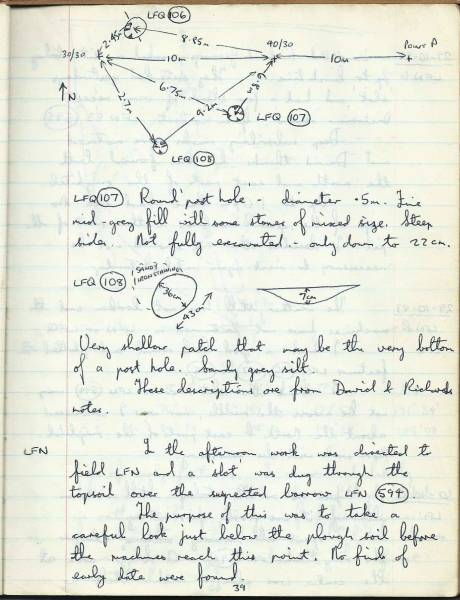 LFQ 106
2.45m
8.95m
30/30
90/30
Point A
10m
10m
N
2.7m
6.75m
9.2m
LFQ 107
LFQ 108
LFQ 107 Round 'post hole' - diameter .5m. Fine
mid-grey fill with some stones of mixed size. Steep
sides. Not fully excavated - only down to 22cm.
LFQ 108
SANDY
IRONSTAINING
36cm
43cm
7cm
Very shallow patch that may be the very bottom
of a post hole. Sandy grey silt.
These descriptions are from David & Richards
notes.
LFN
In the afternoon work was diverted to
field LFN and a 'slot' was dug through the
topsoil over the suspected barrow LFN 594
The purpose of this was to take a
careful look just below the plough soil before
the machines reach this point. No finds of
early date were found.
39